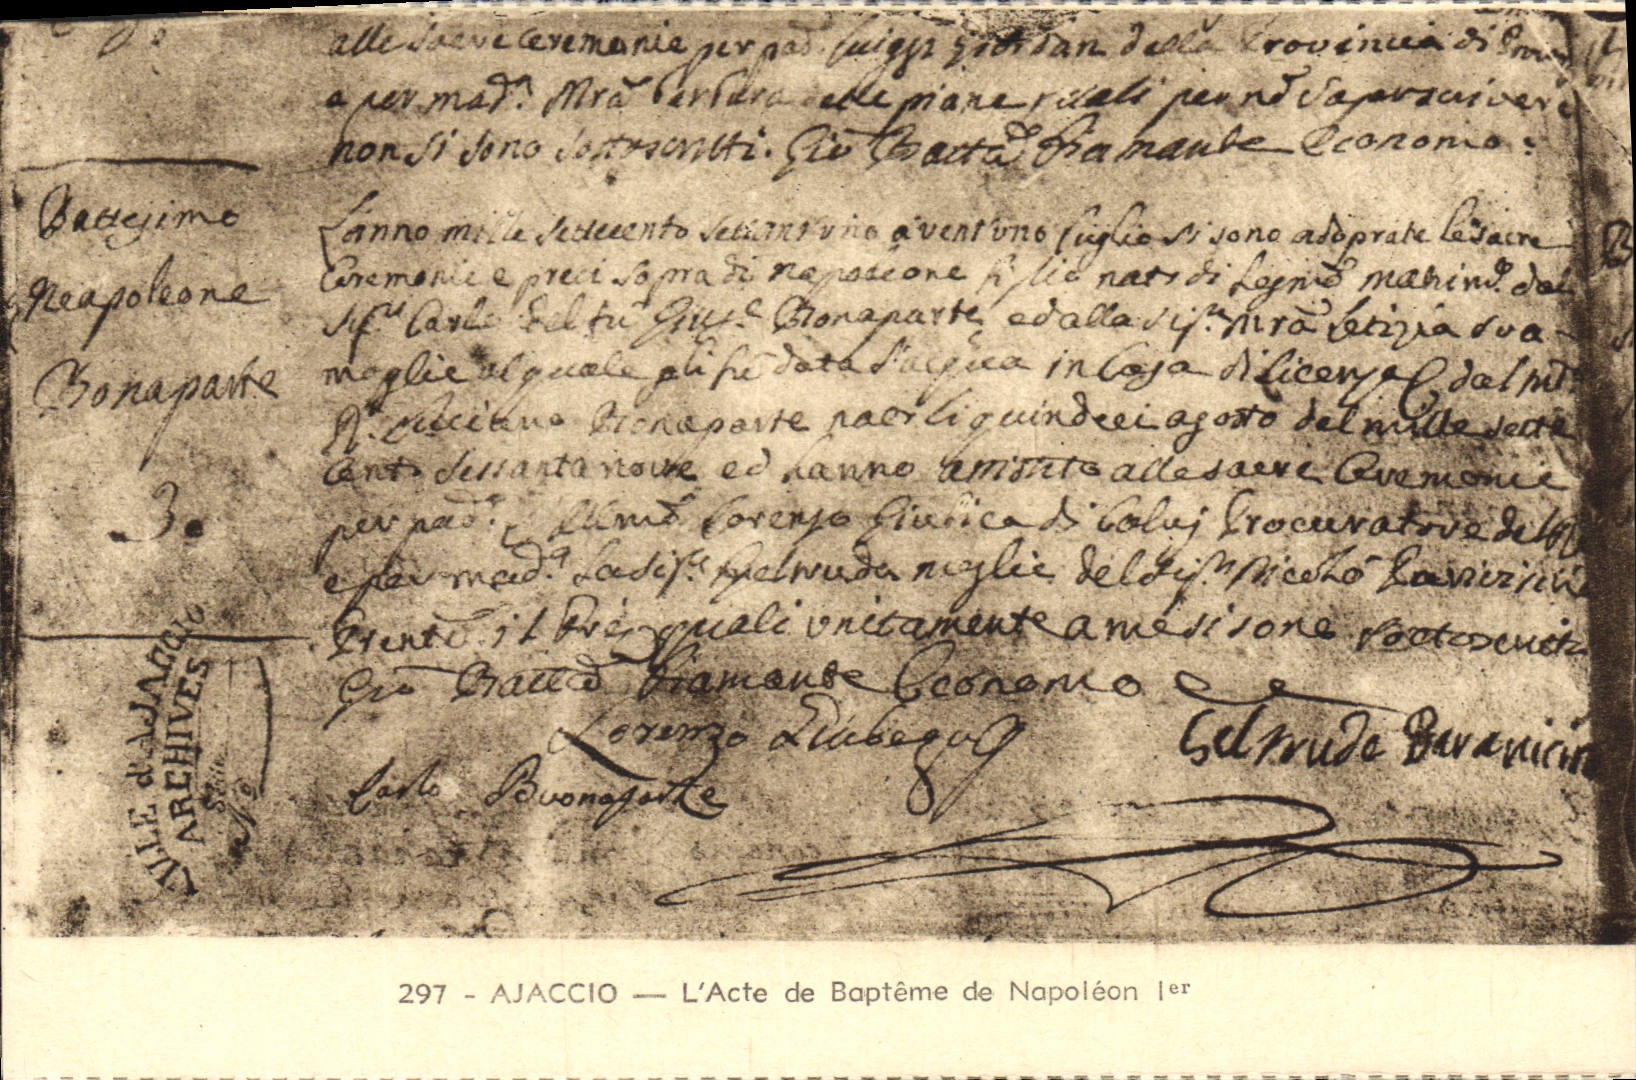 alle sacre Ceremonie per pad. Luiggi Giordan della Provincia di
e per mad.ª Mrã Barbara delle piane quali per nõ saper scrivere
non si sono sottoscritti. Giõ Battã Diamante Economo.
Battesimo
Neapoleone
Bonaparte
3.
L'anno mille settecento settant'uno a vent'uno luglio si sono adoprate le sacre
Ceremonie e preci sopra di Napoleone figlio nato di Legmõ Matrim.º dal
Sig.r Carlo del fu Gius.e Bonaparte, ed alla Sig.ra Mrã Letizia sua
moglie al quale gli fu data l'acqua in Casa di licenza dal
R.do Luciano Bonaparte nato li quindeci agosto del mille sette
cento sessanta nove ed hanno assistito alle sacre Ceremonie
per pad. Lorenzo Giubica di Calvj Procuratore del
e per mad.ª la Sig.ra Geltruda moglie del Sig.r Nicolò
Presente il Pre, quali unitamente a me si sono sottoscritti
Giõ Battã Diamante Economo
Lorenzo Giubega
Geltruda
Carlo Buonaparte
VILLE d'AJACCIO
ARCHIVES
297 - AJACCIO — L'Acte de Baptême de Napoléon Ier